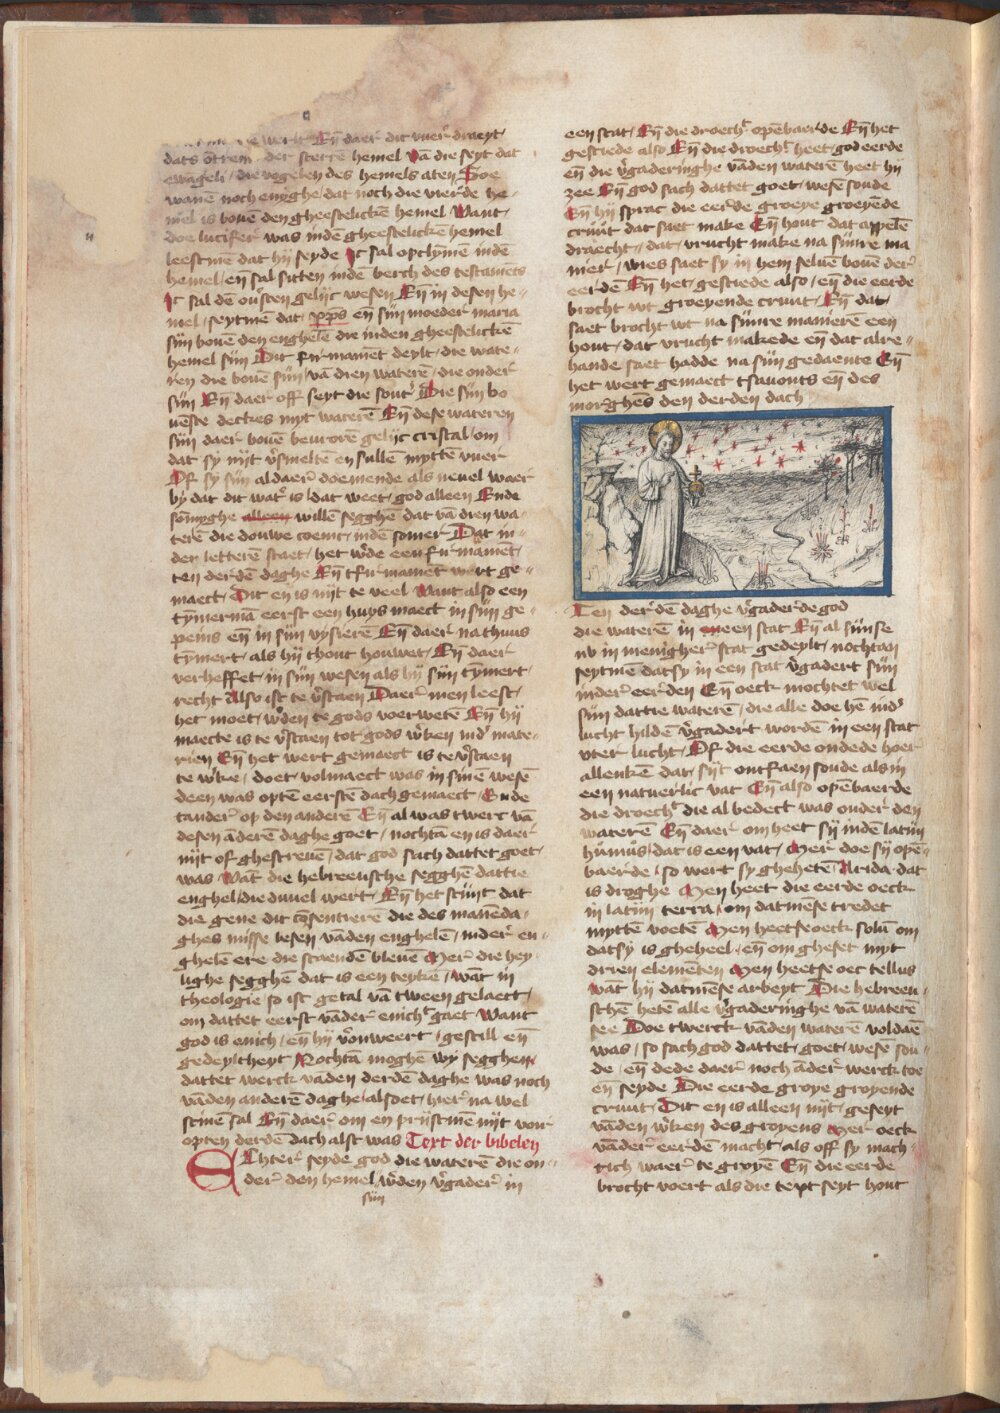 werkt Eñ daer̉ dit vuer̉ draeyt
dats õtrem der sterrẽ hemel Vã die seyt dat
ewãgeli / die vogelen des hemels aten Soe
wanẽ noch enyghe / dat noch die vierde he-
mel is bouẽ den gheestelickẽ hemel Want
doe lucifer̉ was indẽ gheestelickẽ hemel
leestmẽ dat hij seyde Ic sal opclymẽ indẽ
hemel / eñ sal sitten indẽ berch des testamẽts
Ic sal dẽ ousten gelijc wesen Eñ in desen he-
mel / seytmẽ dat xp̃s eñ sijn moeder maria
sijn bouẽ den enghelẽ die inden gheestelickẽ
hemel sijn Dit firmamẽt deylt / die wate-
ren die bouẽ sijn / vã dien waterẽ / die onder̉
sijn Eñ daer̉ off seyt die sout̉ Die sijn bo
uẽste deckes myt waterẽ Eñ dese wateren
sijn daer̉ bouẽ bevrorẽ gelijc cristal / om
dat sy nijt v̉smeltẽ en sullẽ myttẽ vuer
Of sy sijn aldaer̉ doemende als neuel waer̉
by dat dit wat̉ is / dat weet / god alleen Ende
sõmyghe alleen willẽ segghẽ dat vã dien wa-
terẽ die douwe coemt / indẽ somer̉ Dat in-
der letterẽ staet / het w̉de een firmamẽt
ten derdẽ daghe Eñ tfirmamẽt wert ge-
maect / Dit en is nijt te veel Want also een
tymermã eerst een huys maect in sijn ge-
peins eñ in sijn vysierẽ Eñ daer̉ na thuus
tymert / als hij thout houwet / Eñ daer̉
verheffet / in sijn wesen als hij sijn tymert
recht Also ist te v̉staen Daer̉ men leest /
het moet / w̉den te gods voerwetẽ Eñ hij
maecte is te v̉staen tot gods w̉ken ind̉ mate-
rien Eñ het wert gemaect is te v̉staen
te w̉ke / doet / volmaect was in sinẽ wesẽ
deen was optẽ eerstẽ dach gemaect / Ende
tander̉ op den anderẽ Eñ al was twerc vã
desen ãderẽ daghe goet / nochtã en is daer̉
nijt of ghescreuẽ / dat god sach dattet goet /
was Wãt die hebreeusche segghẽ dattie
enghel / die duuel wert / Eñ het scijnt dat
die gene dit cõsentierẽ die des manẽda-
ghes misse lesen vãden enghelẽ / inder̉ en-
ghelẽ ere die staendẽ bleuẽ Mer̉ die hey
lighe segghẽ dat is een teykẽ / wãt in
theologiẽ so ist getal vã tween gelaect /
om dattet eerst vãder̉ enich̉ gaet Want
god is enich / eñ hij v̉onweert / gescil eñ
gedeyltheyt Nochtã moghẽ wy segghen
dattet werck vãden derdẽ daghe was noch
vãden anderẽ daghe / alsoet / hier̉ na wel
scinẽ sal Eñ daer̉ om en prijstmẽ nijt voir
opten derdẽ dach alst was Text der bibelen
Echter̉ seyde god die waterẽ die on-
der̉ den hemel w̉den v̉gader̉ in
sijn
een stat / Eñ die droech̉ opẽbaerde Eñ het
gesciede also Eñ die droech̉ heet / god eerde
eñ die v̉gaderinghe vãden waterẽ heet hij
zee Eñ god sach dattet goet / wesẽ soude
Eñ hij sprac die eer̉de groeye groeyẽde
cruut dat saet make Eñ hout dat appelẽ
draecht / dat / vrucht make na sijnre ma
nier̉ / wies saet sy in hem seluẽ bouẽ der̉
eerdẽ Eñ het / gesciede also / eñ die eerde
brocht wt groeyende cruut / Eñ dat
saet brocht wt na sijnre manierẽ een
hout / dat vrucht makede eñ dat alre-
hande saet hadde na sijn gedaente Eñ
het wert gemaect tsauonts eñ des
morghẽs den derden dach
Ten der̉dẽ daghe v̉gader̉de god
die waterẽ in een stat Eñ al sijnse
nv in menigher̉ stat gedeylt / nochtan
seytmẽ datsy in een stat v̉gadert sijn
inder̉ eer̉den Eñ oeck mochtet wel
sijn dattie waterẽ / die alle doe hẽ ind̉
lucht hildẽ v̉gadert wordẽ in een stat
vter lucht / Of die eerde ondede hoer̉
allenkẽ dat / sijt ontfaen soude als in
een natuerlic vat Eñ also opẽbaerde
die droech̉ die al bedect was onder̉ den
waterẽ Eñ daer̉ om heet sij indẽ latijn
hũmus / dat is een vat / Mer̉ doe sij opẽ-
baerde / so wert sy ghehetẽ Arida / dat
is droghe Men heet die eerde oeck
in latijn terra / om datmẽse tredet
myttẽ voetẽ Men heetse oeck solũ om
datsy is gheheel / eñ om gheset myt
drien elemẽten Men heetse oec tellus
wãt hij datmẽse arbeyt Die hebreeu-
schẽ hetẽ alle v̉gaderinghe vã waterẽ
see Doe twerck vãden waterẽ voldaẽ
was / so sach god dattet / goet / wesẽ sou-
de / eñ dede daer̉ noch ãder̉ werck toe
eñ seyde Die eerde groye groyende
cruut / Dit en is alleen nijt / geseyt
vãden w̉ken des groyens Mer̉ oeck
vãder̉ eerdẽ macht / als off sy mach-
tich waer̉ te groyẽ Eñ die eerde
brocht voert als die text seyt hout